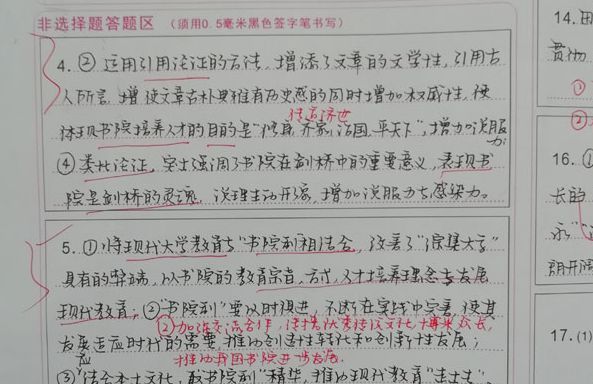 非选择题答题区 （须用0.5毫米黑色签字笔书写）
4. ② 运用引用论证的方法，增添了文章的文学性，引用古
人所言，增使文章古朴典雅有历史感的同时增加权威性，使
经言济世
体现书院培养人才的目的是“修身 齐家 治国 平天下”，增加说服力
④ 类比论证，突出强调了书院在剑桥中的重要意义，表现书
院是剑桥的灵魂，说理生动形象，增加说服力与感染力。
5. ① 将现代大学教育与“书院制”相结合，改善了“ 大学”
具有的弊端，以书院的教育宗旨、方式，对培养理念与发展
现代教育；②“书院制”要以时俱进，不断在实践中完善，使其
② 加强交流合作，传统文化，
发展适应时代的需要，推动创造性转化和创新性发展；
推动我国书院进步发展。
③ 结合本土文化，取“书院制”精华，推动现代教育
14.
贯彻
①
②
16. ①
长的
永
朗开阔
17. (1)